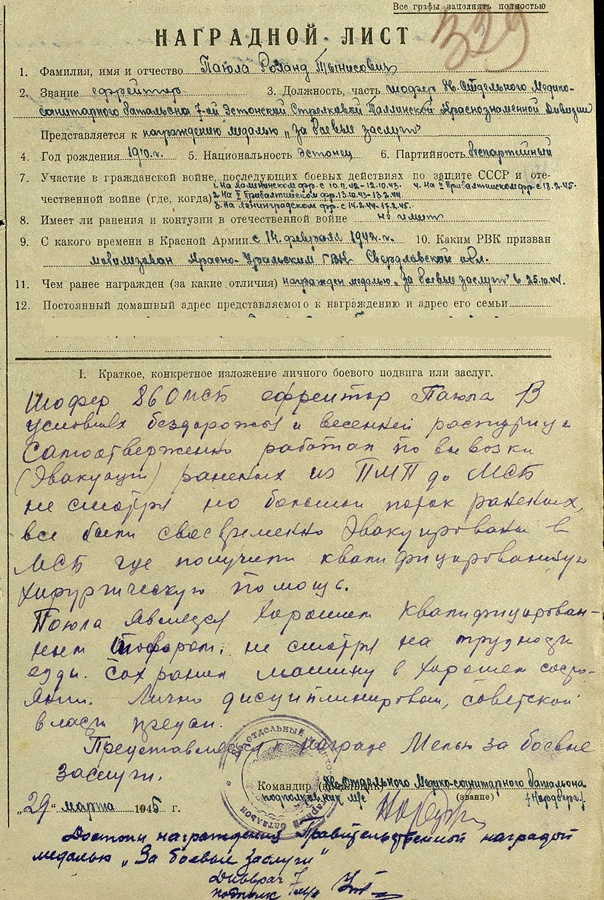 Все графы заполнять полностью
329
НАГРАДНОЙ ЛИСТ
1. Фамилия, имя и отчество Паюла Роланд Тынисович
2. Звание ефрейтор 3. Должность, часть шофер 86. Отдельного Медико-
санитарного батальона 7-ой Эстонской Стрелковой Таллинской Краснознаменной Дивизии
Представляется к награждению медалью „За боевые заслуги"
4. Год рождения 1910 г. 5. Национальность эстонец 6. Партийность беспартийный
7. Участие в гражданской войне, последующих боевых действиях по защите СССР и оте-
чественной войне (где, когда) 1. На Калининском фр. с 10.11.42-12.10.43. 4. На Прибалтийском фр. с 18.2.45.
2. На Прибалтийском фр. 13.10.43-13.2.44
3. На Ленинградском фр. с 14.2.44-17.2.45.
8. Имеет ли ранения и контузии в отечественной войне не имеет
9. С какого времени в Красной Армии с 14. февраля 1942 г. 10. Каким РВК призван
мобилизован Красно-Уральским ГВК Свердловской обл.
11. Чем ранее награжден (за какие отличия) награжден медалью „За боевые заслуги" в 25.10.44.
12. Постоянный домашный адрес представляемого к награждению и адрес его семьи
I. Краткое, конкретное изложение личного боевого подвига или заслуг.
Шофер 86 ОМСБ ефрейтор Паюла В
условиях бездорожья и весенней распутицы
самоотверженно работал по вывозки
(Эвакуации) раненых из ПМП до МСБ
не смотря на большой поток раненых,
все были своевременно Эвакуированы в
МСБ где получили квалифицированную
хирургическую помощь.
Паюла является хорошем квалифицирован-
ным шофером. не смотря на трудности
езды. Сохранил машину в хорошем состо-
янии. Лично дисциплинирован, советской
власти предан.
Представляется к награде Медалью за боевые
заслуги.
Командир 86 Отдельного Медико-санитарного батальона
подполковник м/с (звание)
„29" марта 1945 г.
Достоин награждения Правительственной наградой
медалью „За боевые заслуги"
Дивврач 7
подполк м/с